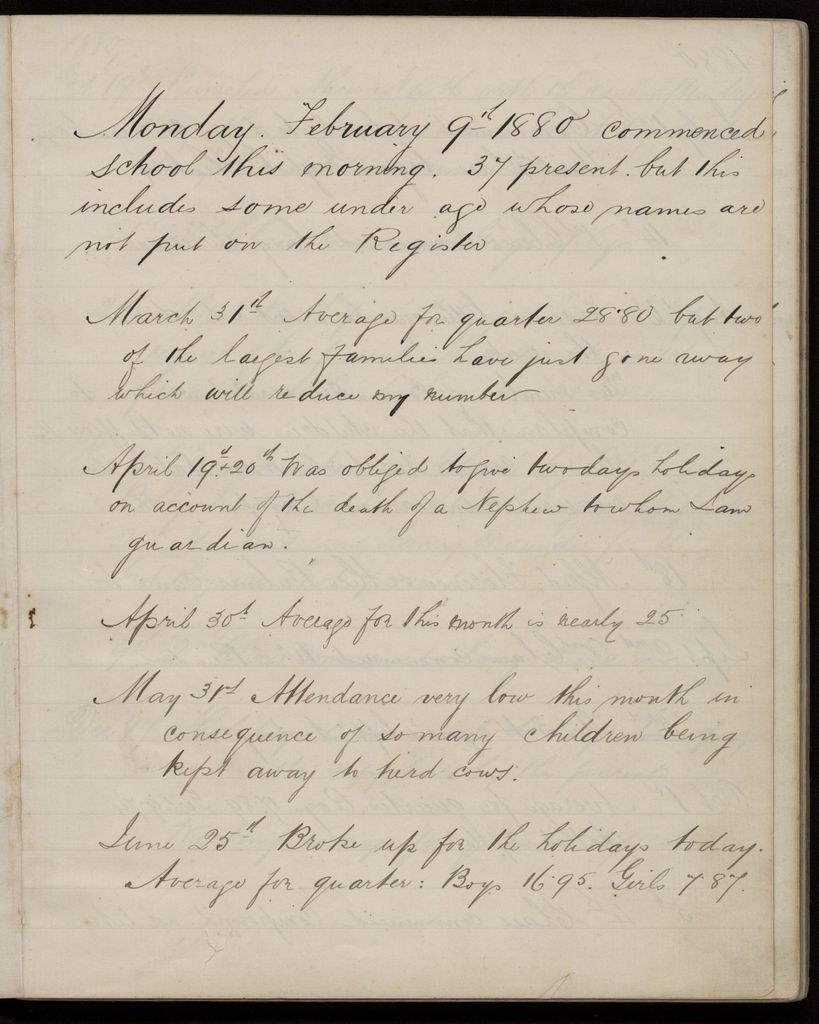 Monday. February 9th 1880 commenced
school this morning. 37 present. but this
includes some under age whose names are
not put on the Register
March 31st Average for quarter 28.80 but two
of the largest families have just gone away
which will reduce my number
April 19th + 20th Was obliged to give two days holidays
on account of the death of a Nephew to whom I am
guardian.
April 30th Average for this month is nearly 25
May 31st Attendance very low this month in
consequence of so many children being
kept away to herd cows.
June 25th Broke up for the holidays today.
Average for quarter: Boys 16.95. Girls 7.87.